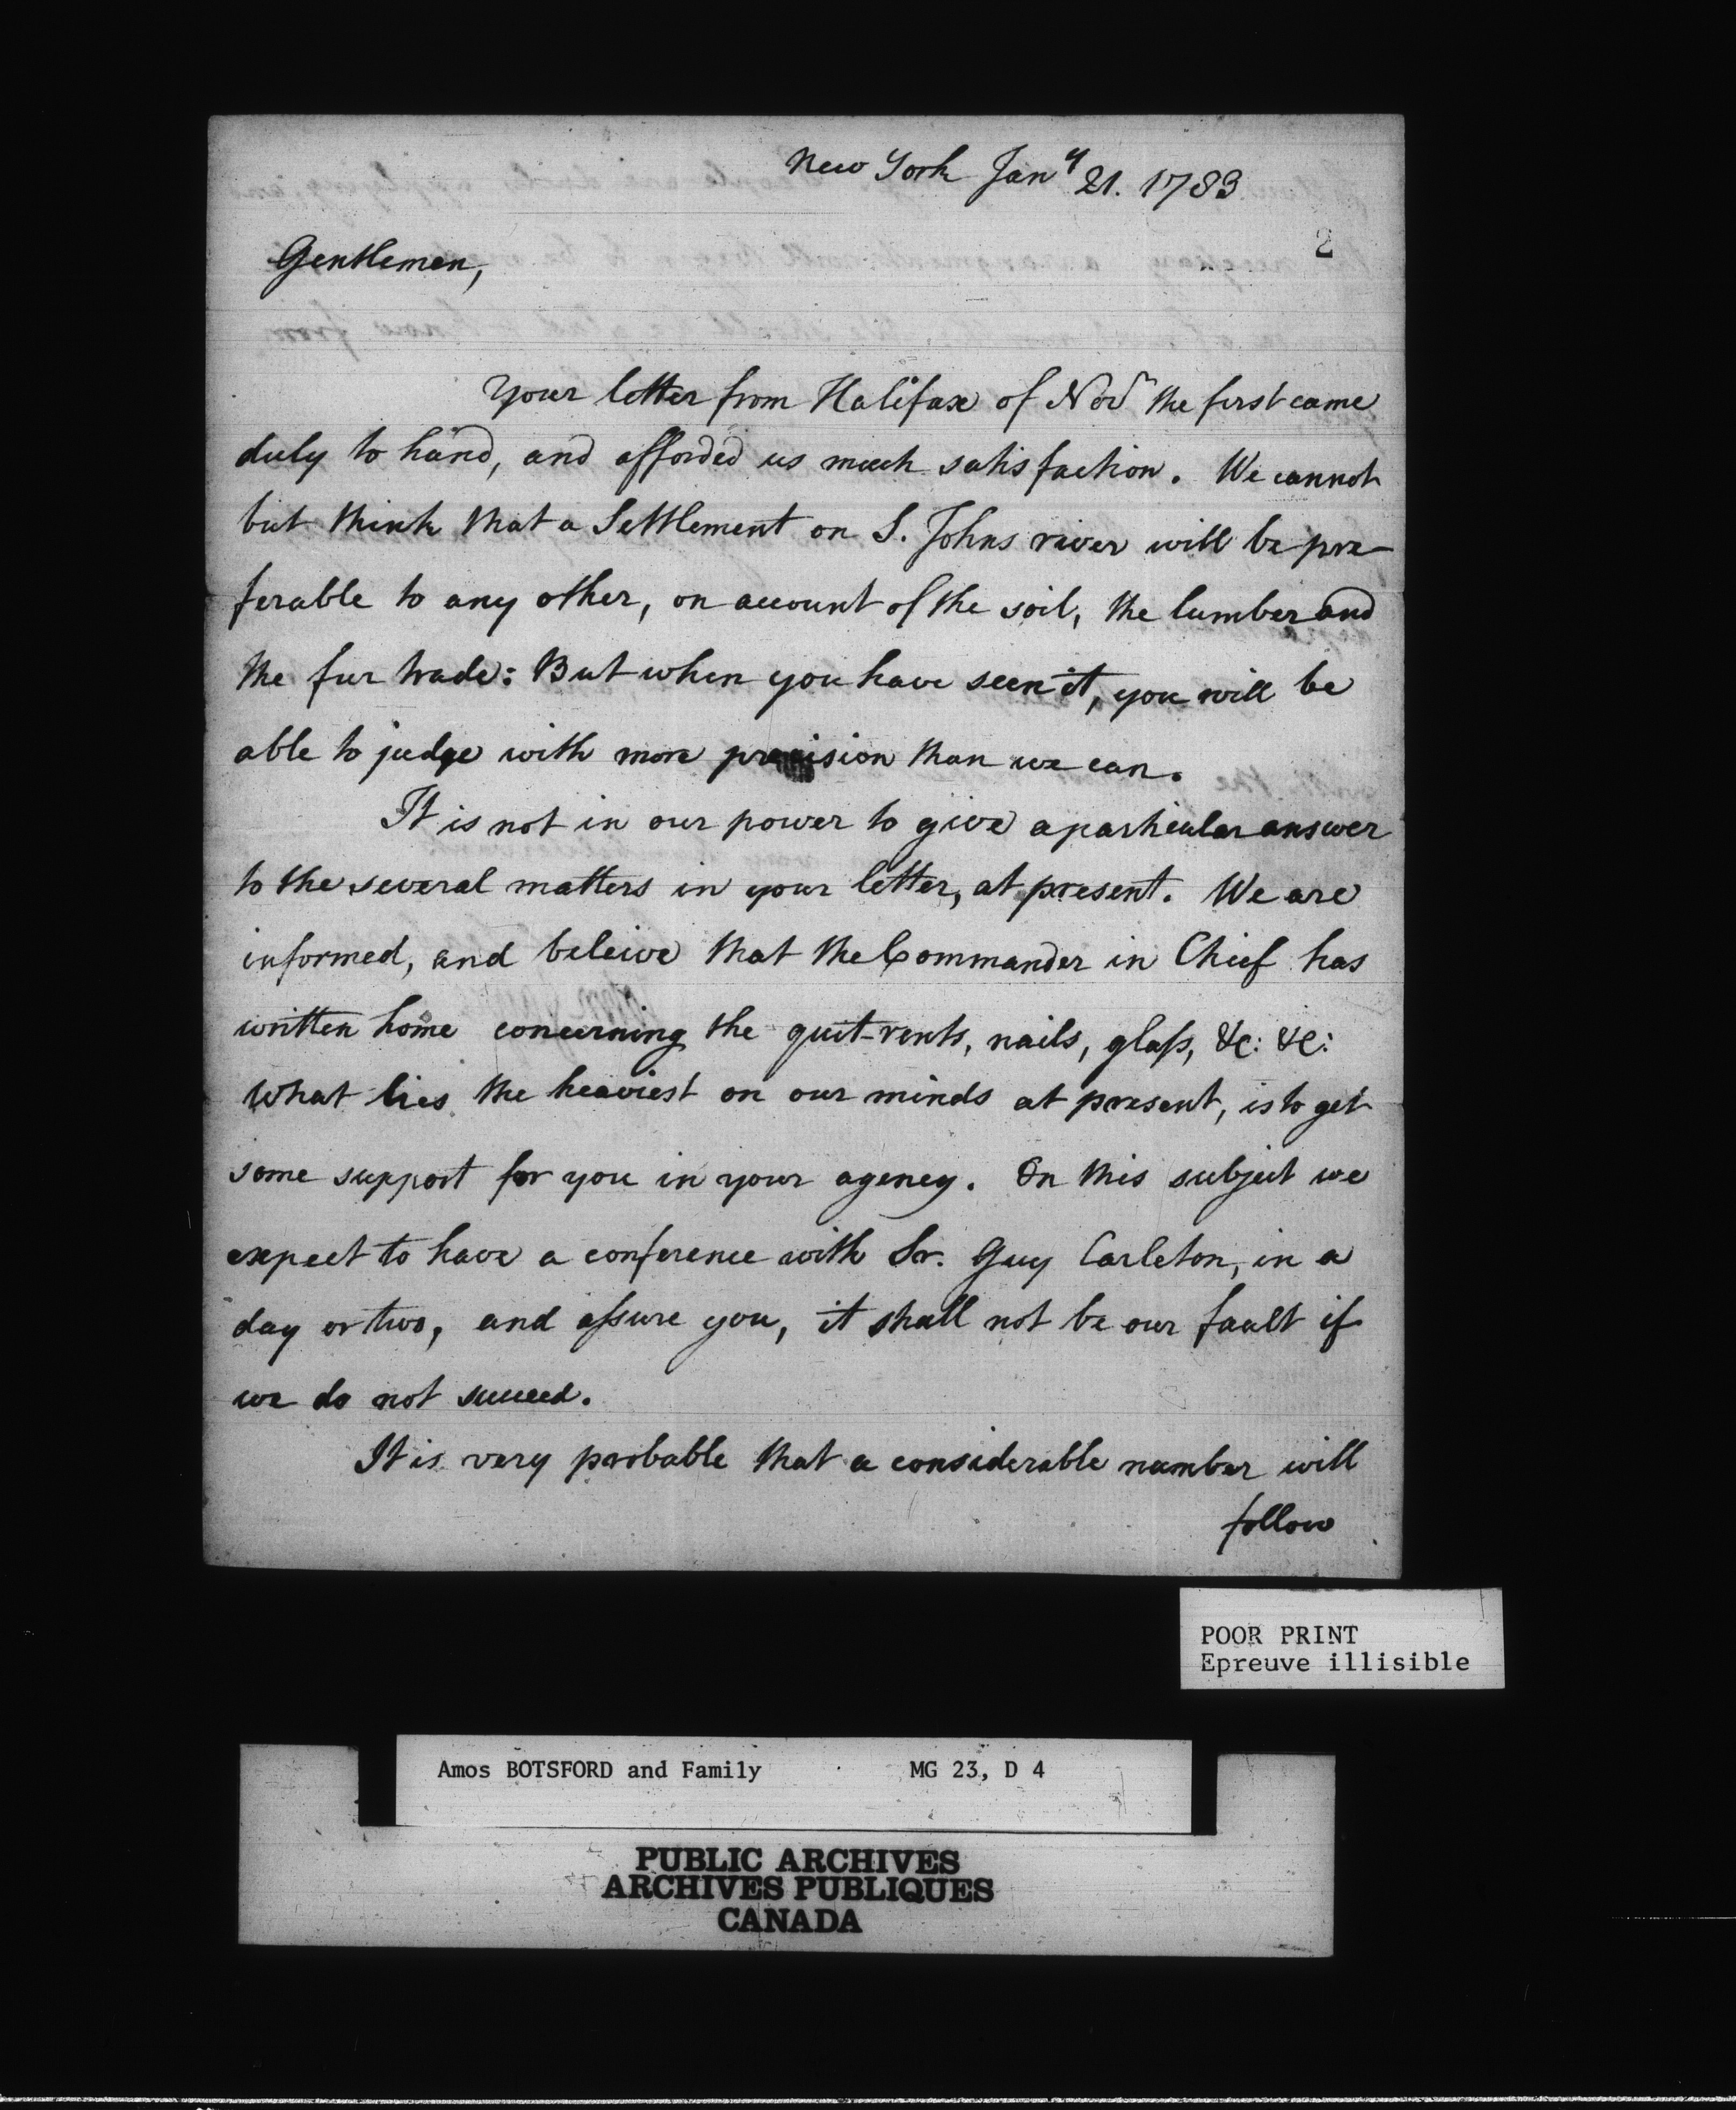 New York Jany 21. 1783
2
Gentlemen,
Your letter from Halifax of Novr the first came
duly to hand, and afforded us much satisfaction. We cannot
but think that a Settlement on S. Johns river will be pre-
ferable to any other, on account of the soil, the lumber and
the fur trade: But when you have seen it, you will be
able to judge with more precision than we can.
It is not in our power to give a particular answer
to the several matters in your letter, at present. We are
informed, and beleive that the Commander in Chief has
written home concerning the quit-rents, nails, glaſs, &c: &c:
What lies the heaviest on our minds at present, is to get
some support for you in your agency. On this subject we
expect to have a conference with Sr. Guy Carleton, in a
day or two, and aſsure you, it shall not be our fault if
we do not succeed.
It is very probable that a considerable number will
follow
POOR PRINT
Epreuve illisible
Amos BOTSFORD and Family MG 23, D 4
PUBLIC ARCHIVES
ARCHIVES PUBLIQUES
CANADA